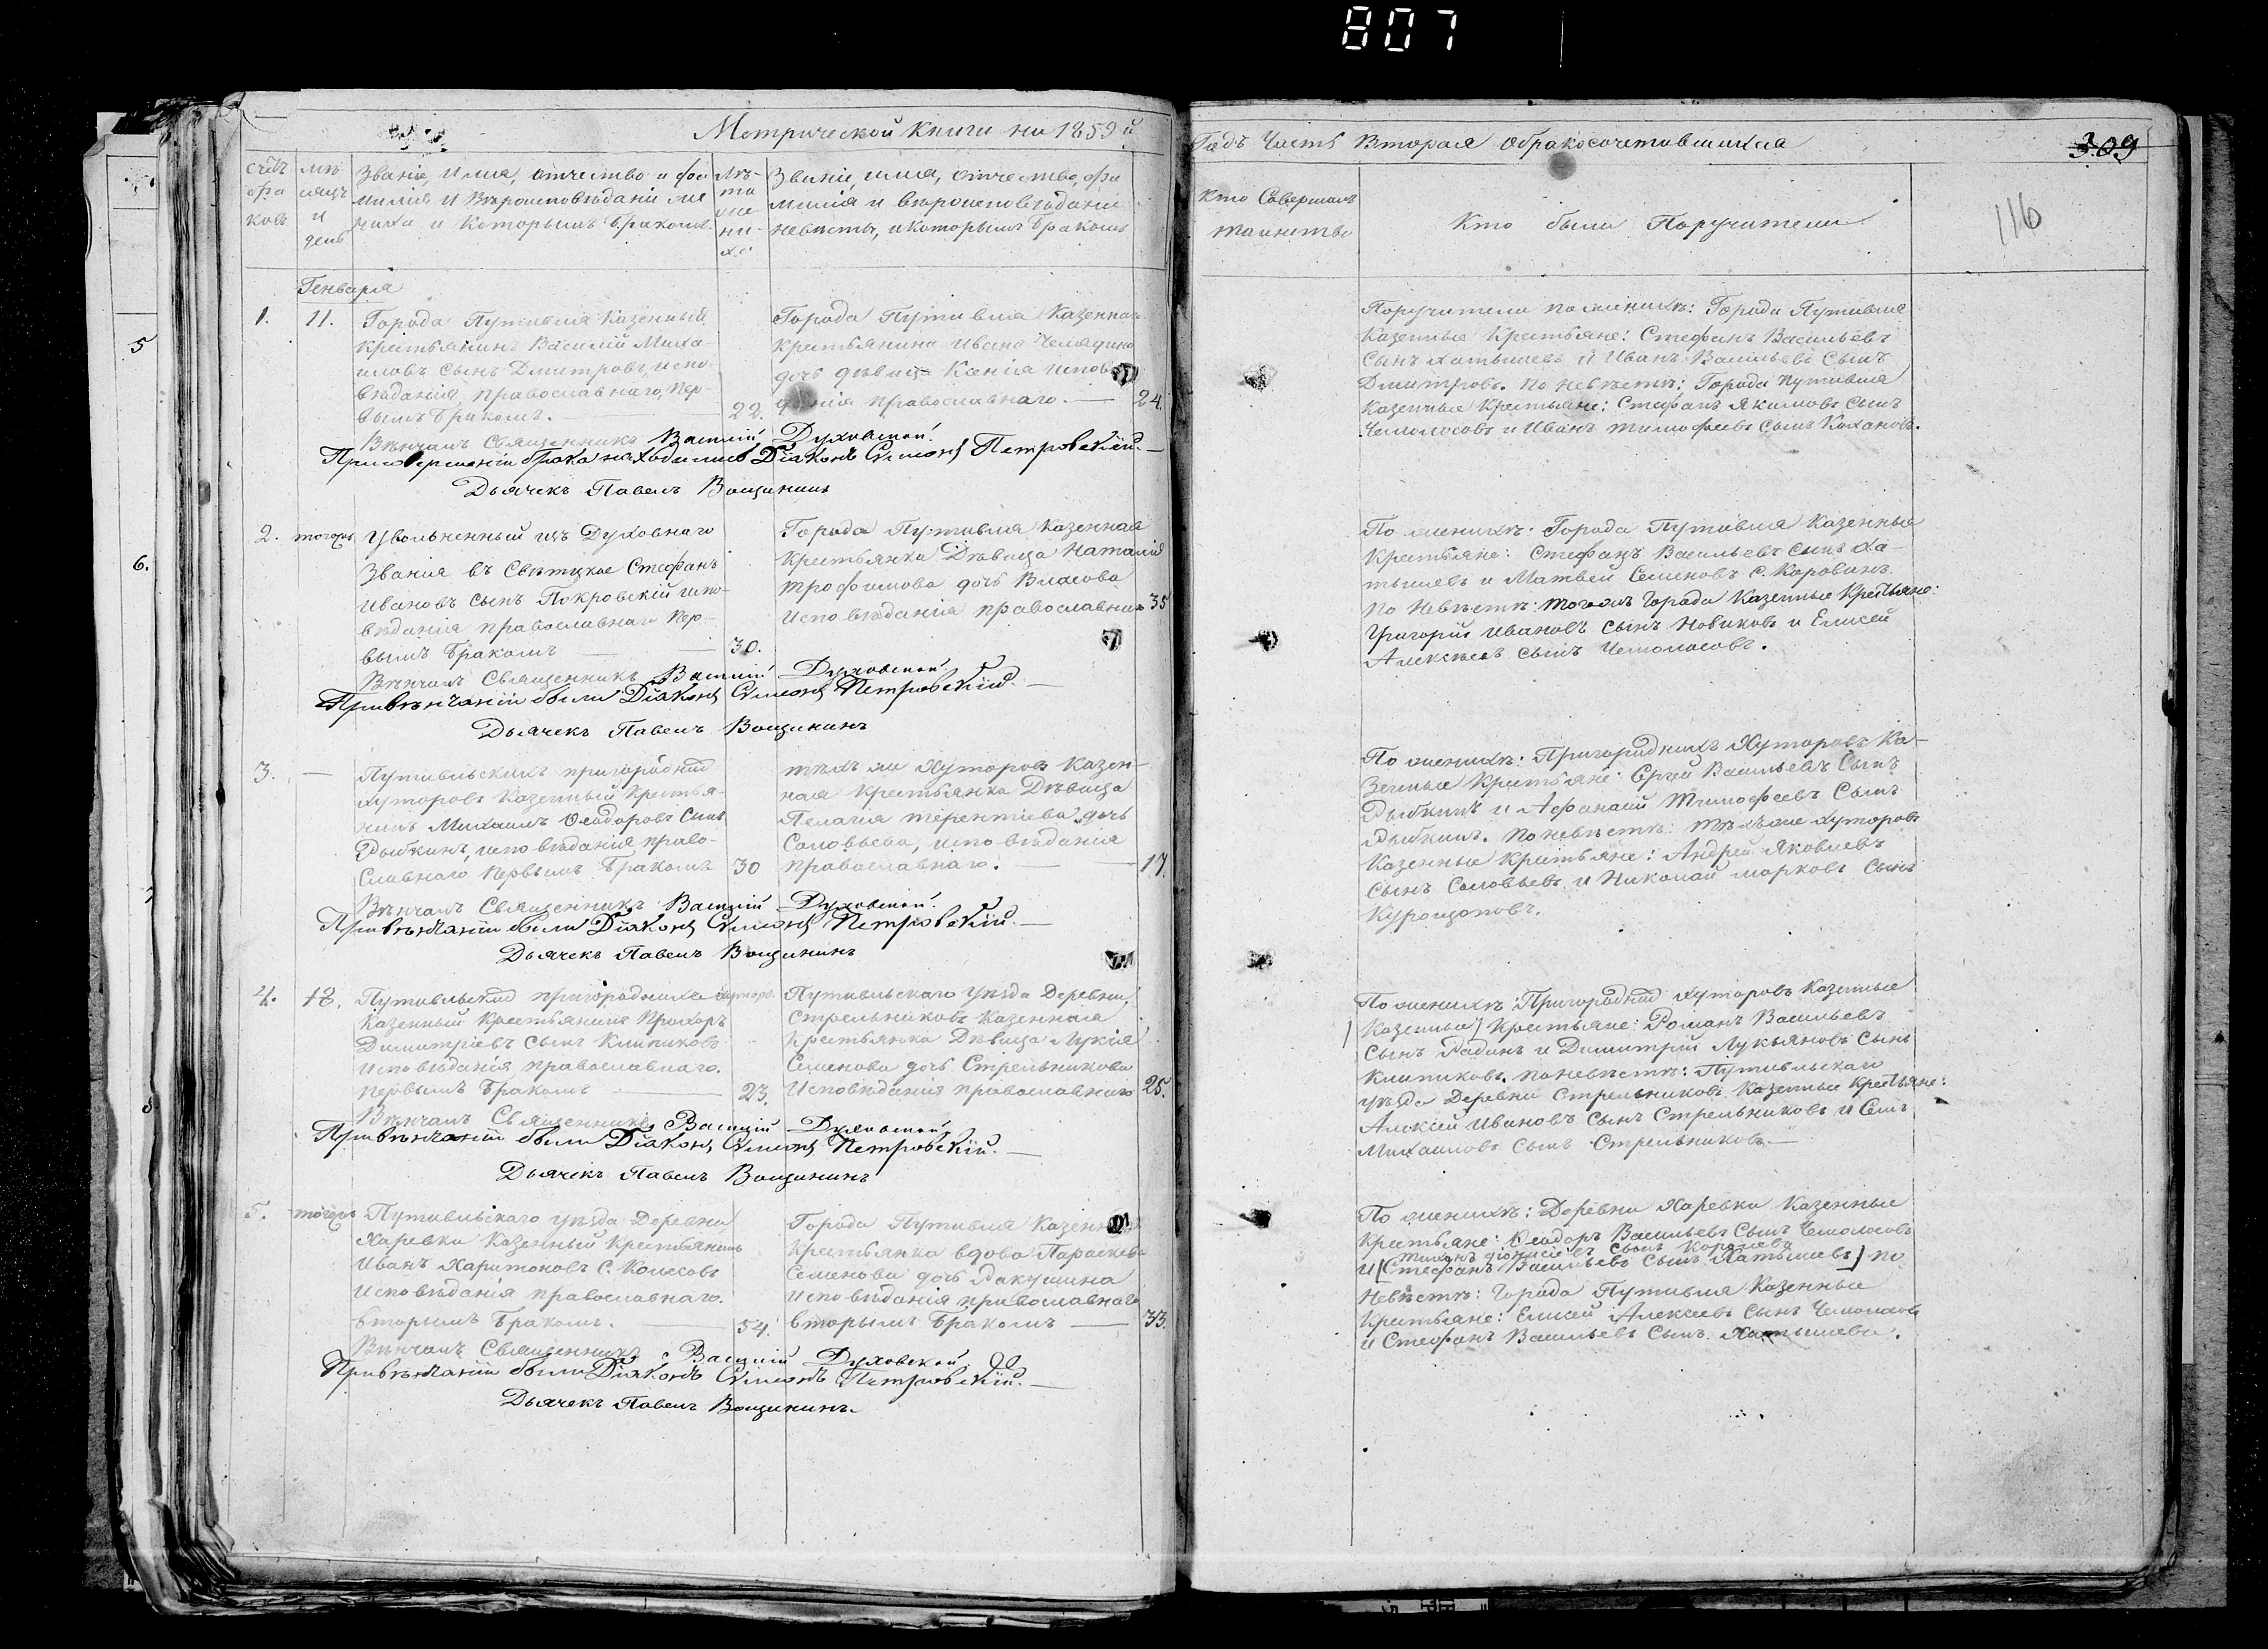 807
Метрической книги на 1859й
Годъ Часть Вторая о бракосочетавшихся
309
116
счетъ браковъ
мѣсяцъ и день
Званіе, имя, отчество и фамилія и вѣроисповѣданіе жениха и которымъ бракомъ
Лѣта жениха
Званіе, имя, отчество, фамилія и вѣроисповѣданіе невѣсты, и которымъ бракомъ
Кто Совершалъ таинство
Кто были Поручители
Генваря
1.
11.
Города Путивля казенный
крестьянинъ Василій Миха-
иловъ сынъ Дмитровъ, испо-
вѣданія православнаго, пер-
вымъ бракомъ.
22.
Города Путивля Казеннаго
крестьянина Ивана
дочь дѣвица Ксенія
православнаго.
24.
Вѣнчалъ Священникъ Василій Духовской.
При совершеніи брака находились Діаконъ Симеонъ Петровскій.
Дьячекъ Павелъ Вощининъ
Поручители по женихѣ: Города Путивля
Казенные Крестьяне: Стефанъ Васильевъ
Сынъ Латышевъ и Иванъ Васильевъ Сынъ
Дмитровъ. По невѣстѣ: Города Путивля
Казенные Крестьяне: Стефанъ Якимовъ Сынъ
Чемолосовъ и Иванъ Тимофеевъ Сынъ
2.
тогожъ
Увольненный изъ Духовнаго
Званія въ Свѣтское Стефанъ
Ивановъ сынъ Покровскій испо-
вѣданія православнаго пер-
вымъ бракомъ
30.
Города Путивля Казенная
Крестьянка Дѣвица Наталія
Трофимова дочь Власова
Исповѣданія православнаго
35
Вѣнчалъ Священникъ Василій Духовской.
При вѣнчаніи были Діаконъ Симеонъ Петровскій.
Дьячекъ Павелъ Вощининъ
По женихѣ: Города Путивля Казенные
Крестьяне: Стефанъ Васильевъ Сынъ Ла-
тышевъ и Матвей Семеновъ с. Коровинъ.
По Невѣстѣ: тогожъ Города Казенные Крестьяне:
Григорій Ивановъ сынъ Новиковъ и Елисей
Алексѣевъ сынъ Чемолосовъ.
3.
Путивльскихъ пригородныхъ
хуторовъ Казенный Крестья-
нинъ Михаилъ Ѳеодоровъ Сынъ
Рыбкинъ, исповѣданія право-
славнаго первымъ бракомъ
30
тѣхъ же Хуторовъ Казен-
ная Крестьянка Дѣвица
Пелагія Терентіева дочь
Соловьева, исповѣданія
православнаго.
17.
Вѣнчалъ Священникъ Василій Духовской.
При вѣнчаніи были Діаконъ Симеонъ Петровскій.
Дьячекъ Павелъ Вощининъ
По женихѣ: Пригородныхъ Хуторовъ Ка-
зенные Крестьяне: Сергѣй Васильевъ Сынъ
Рыбкинъ и Афанасій Тимофеевъ Сынъ
Рыбкинъ. По невѣстѣ: тѣхъ же хуторовъ
Казенные Крестьяне: Андрей Яковлевъ
сынъ Соловьевъ и Николай Марковъ Сынъ
4.
18.
Путивльскихъ пригородныхъ хуторовъ
Казенный Крестьянинъ Прохоръ
Димитріевъ сынъ Клитиковъ
исповѣданія православнаго.
первымъ бракомъ
23.
Путивльскаго уѣзда Деревни,
Стрельниковъ Казенная
крестьянка Дѣвица Лукія
Семенова дочь Стрельникова
Исповѣданія православнаго
25.
Вѣнчалъ Священникъ Василій Духовской
При вѣнчаніи были Діаконъ Симеонъ Петровскій.
Дьячекъ Павелъ Вощининъ
По женихѣ: Пригородныхъ хуторовъ Казенные
(Казенные) Крестьяне: Романъ Васильевъ
Сынъ Радинъ и Димитрій Лукьяновъ Сынъ
Клитиковъ. По невѣстѣ: Путивльскаго
уѣзда Деревни Стрельниковъ Казенные Крестьяне:
Алексій Ивановъ Сынъ Стрельниковъ и
Михаиловъ Сынъ Стрельниковъ
5.
тогожъ
Путивльскаго уѣзда Деревни
Харевки Казенный Крестьянинъ
Иванъ Харитоновъ С. Колесовъ
исповѣданія православнаго.
вторымъ бракомъ.
54.
Города Путивля Казенная
Крестьянка вдова Параскева
Семенова дочь
Исповѣданія православнаго
вторымъ бракомъ
33.
Вѣнчалъ Священникъ Василій Духовской
При вѣнчаніи были Діаконъ Симеонъ Петровскій.
Дьячекъ Павелъ Вощининъ.
По женихѣ: Деревни Харевки Казенные
Крестьяне: Ѳеодоръ Васильевъ Сынъ Чемолосовъ
Тихонъ Діонисіевъ Сынъ Королевъ
и (Стефанъ Васильевъ Сынъ Латышевъ) по
Невѣстѣ: Города Путивля Казенные
Крестьяне: Елисей Алексеевъ Сынъ Чемолосовъ
и Стефанъ Васильевъ Сынъ Латышевъ.
5
6.